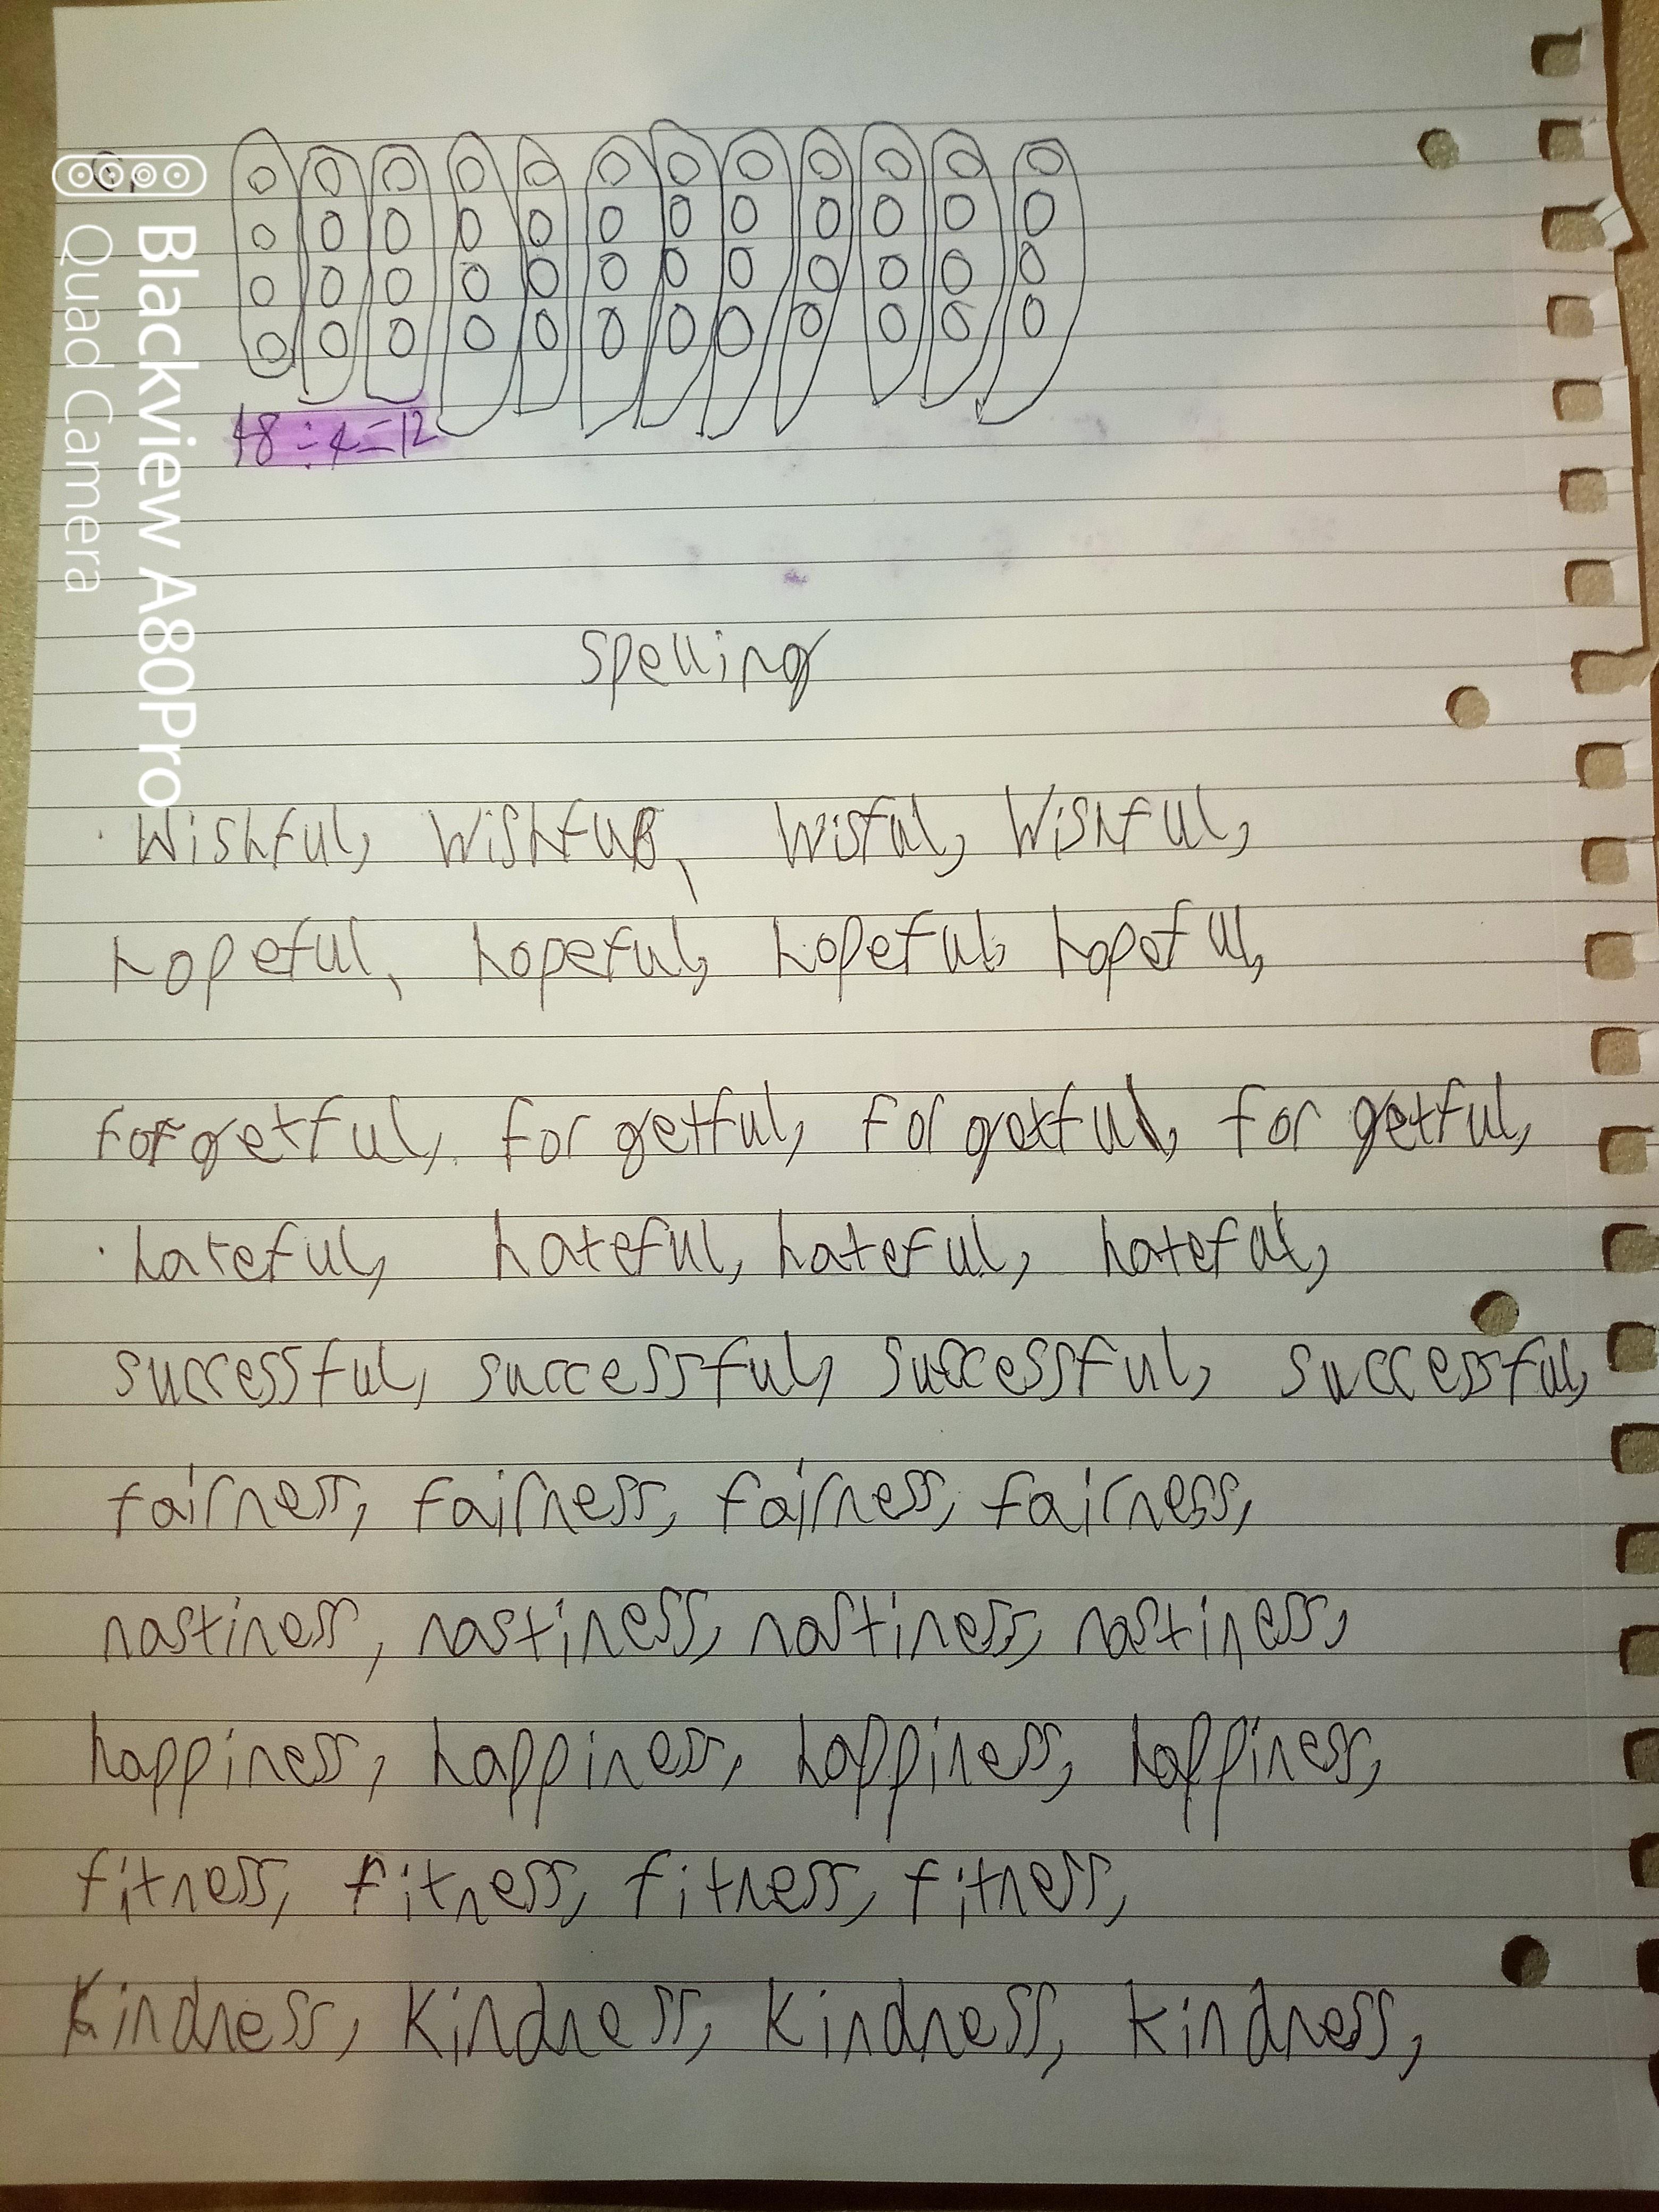 48÷4=12
Spelling
Wishful, Wishful, Wisful, Wishful,
hopeful, hopeful, hopeful, hopeful,
forgetful, forgetful, forgetful, forgetful,
hateful, hateful, hateful, hateful,
successful, successful, successful, successful,
fairness, fairness, fairness, fairness,
nastiness, nastiness, nastiness, nastiness,
happiness, happiness, happiness, happiness,
fitness, fitness, fitness, fitness,
Kindness, Kindness, Kindness, kindness,
Blackview A80Pro
Quad Camera